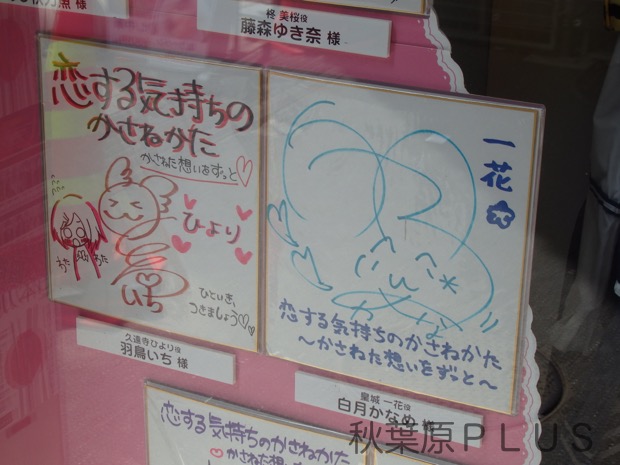 柊 美桜役
藤森ゆき奈 様
恋する気持ちの
かさねかた
かさねた想いをずっと♡
ひより
いち
ひといき、
つきましょう♡
久遠寺ひより役
羽鳥いち 様
一花
恋する気持ちのかさねかた
～かさねた想いをずっと～
皇城 一花役
白月かなめ 様
恋する気持ちのかさねかた
かさねた想い
秋葉原PLUS